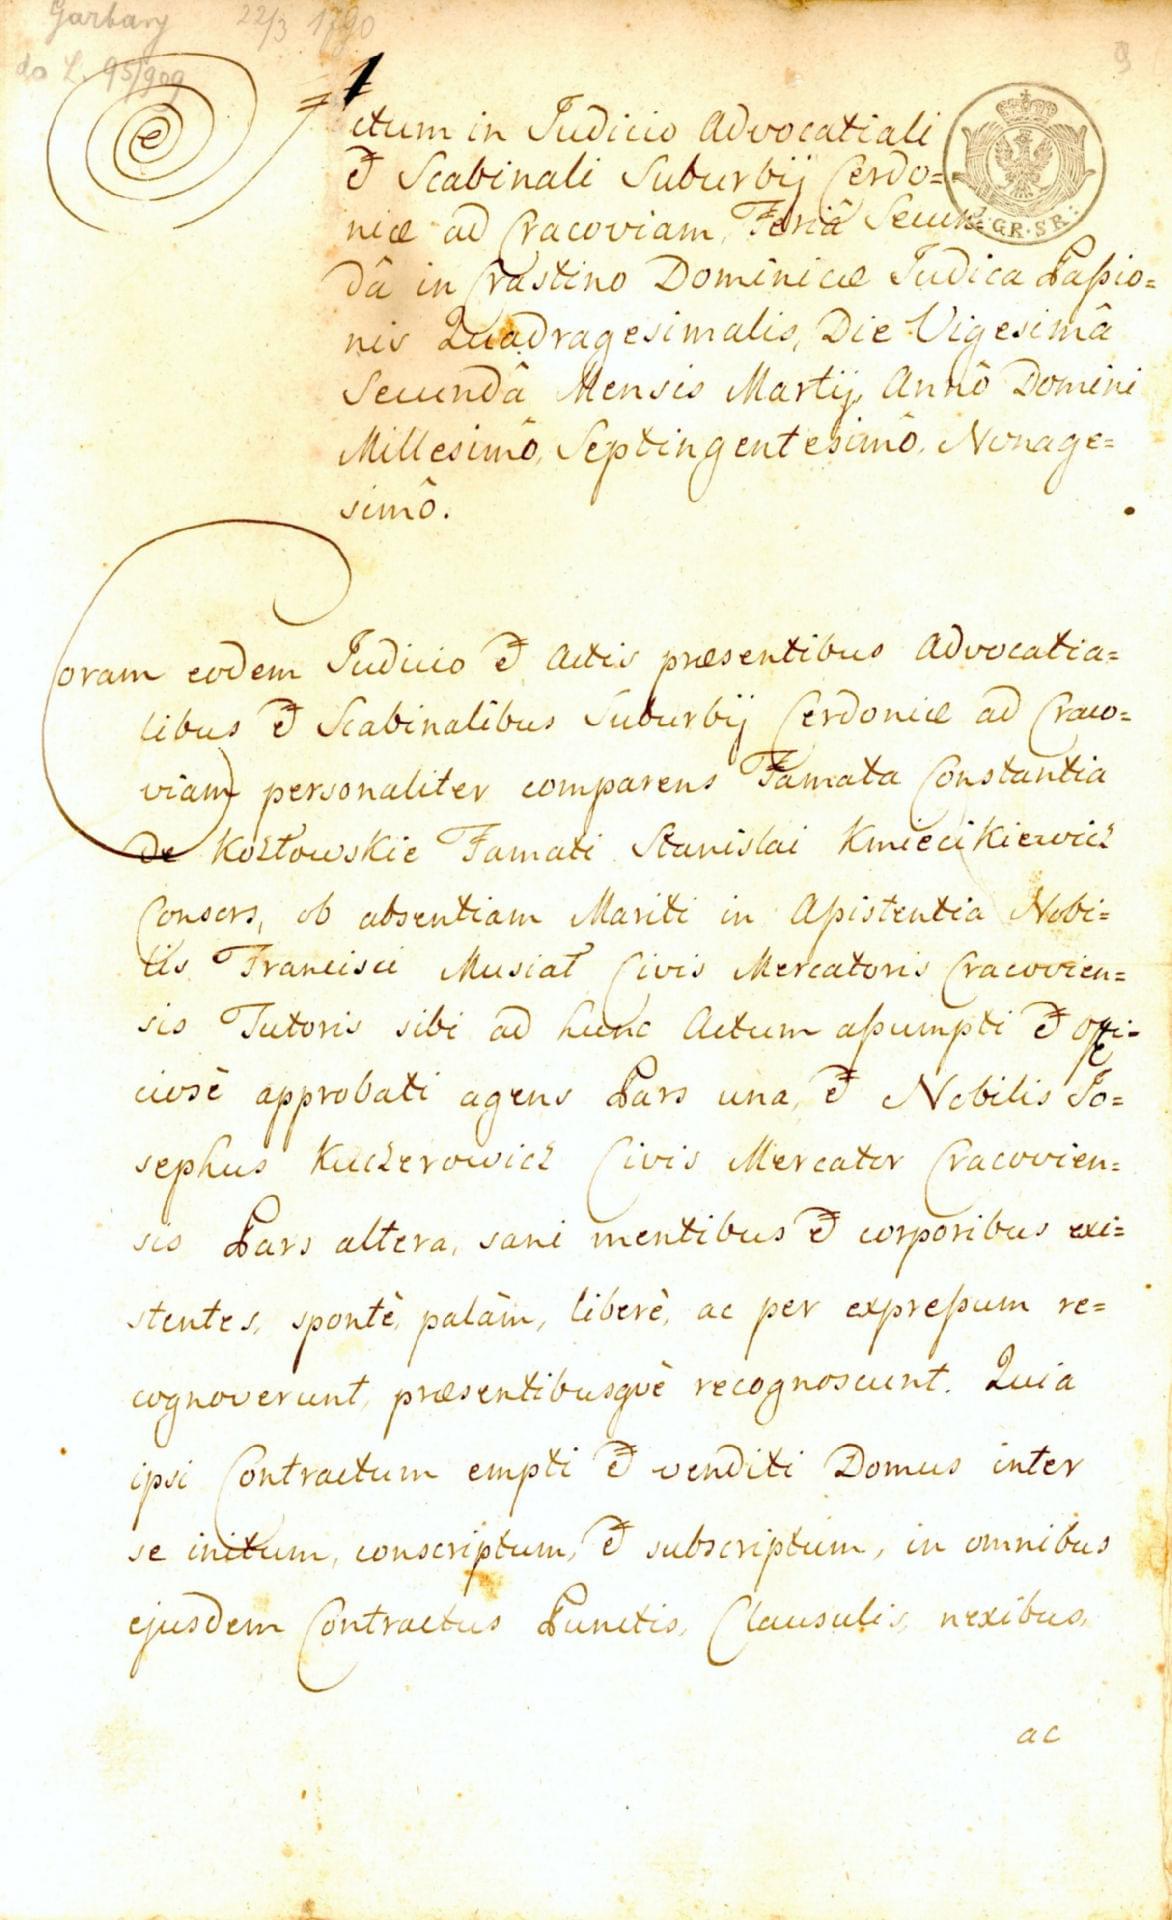 Garbary 22/3 1790
do L. 95/909
9
Actum in Judicio Advocatiali
Et Scabinali Suburbij Cerdo=
niæ ad Cracoviam, Feriâ Secun=
GR. SR.
dâ in Crastino Dominicæ Judica Paßio=
nis Quadragesimalis, Die Vigesimâ
Secundâ Mensis Martij, Annô Domini
Millesimô, Septingentesimô, Nonage=
simô.
Coram eodem Judicio Et Actis præsentibus Advocatia=
libus Et Scabinalibus Suburbij Cerdoniæ ad Craco=
viam personaliter comparens Famata Constantia
de Kozłowskie Famati Stanislai Kmiecikiewicz
Consors, ob absentiam Mariti in Aßistentia Nobi=
lis Francisci Musiał Civis Mercatoris Cracovien=
sis Tutoris sibi ad hunc Actum aßumpti Et offi=
ciosè approbati agens Pars una, Et Nobilis Jo=
sephus Kuczerowicz Civis Mercator Cracovien=
sis Pars altera, sani mentibus Et corporibus exi=
stentes, spontè, palàm, liberè, ac per expreßum re=
cognoverunt, præsentibusquè recognoscunt. Quia
ipsi Contractum empti Et venditi Domus inter
se initum, conscriptum, Et subscriptum, in omnibus
ejusdem Contractus Punctis, Clausulis, nexibus,
ac